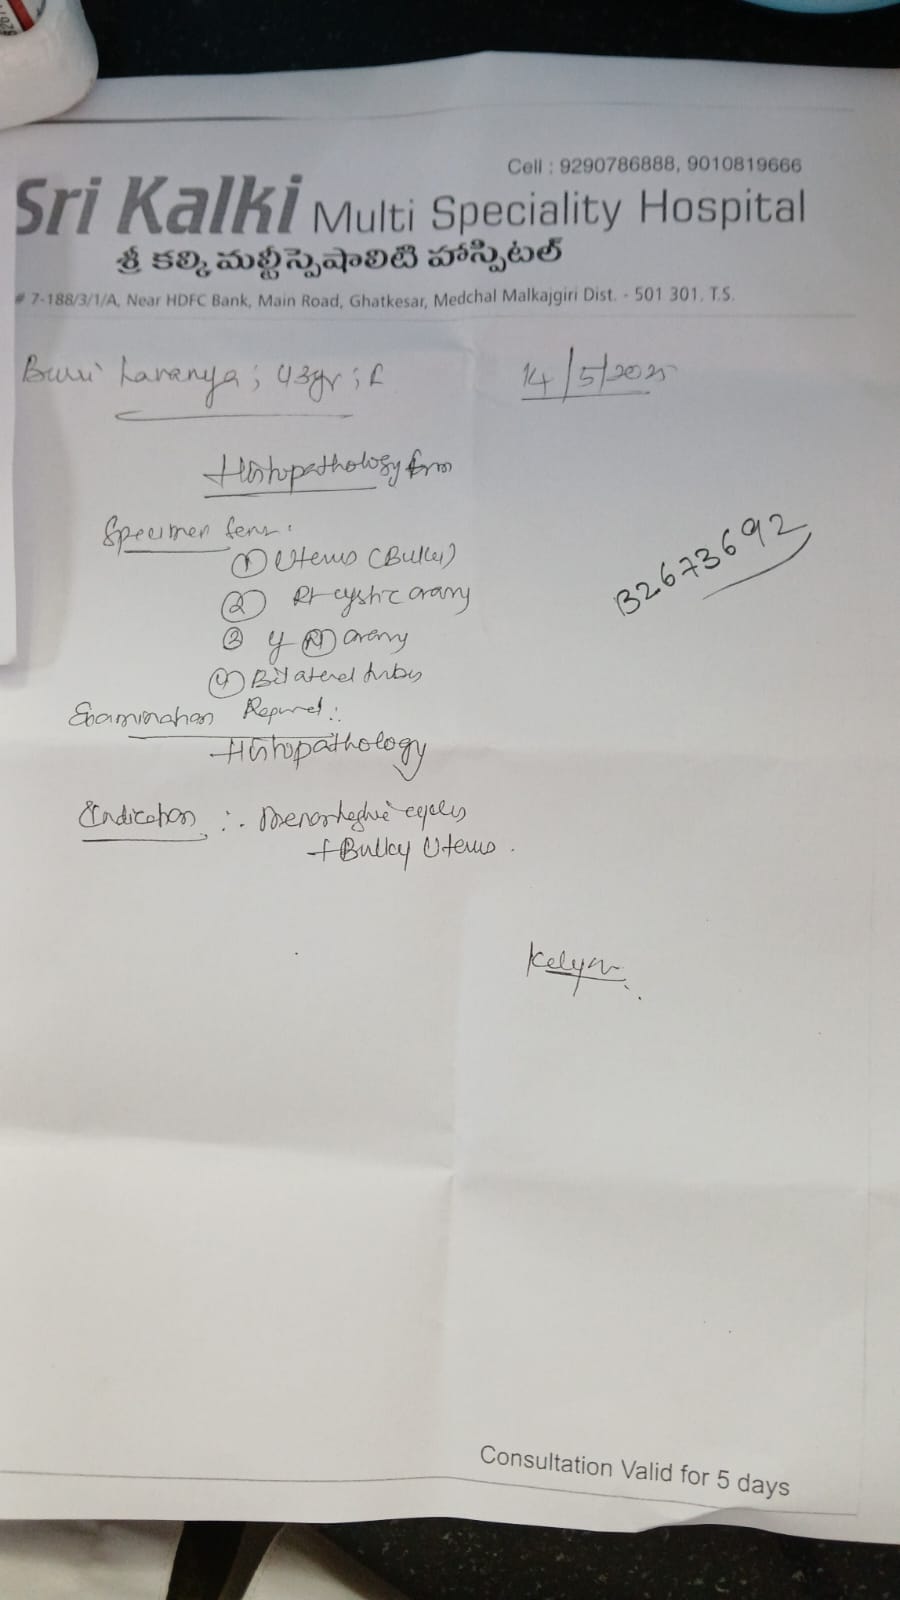 Cell : 9290786888, 9010819666
Sri Kalki Multi Speciality Hospital
శ్రీ కల్కి మల్టీస్పెషాలిటి హాస్పిటల్
# 7-188/3/1/A, Near HDFC Bank, Main Road, Ghatkesar, Medchal Malkajgiri Dist. - 501 301. T.S.
Lavanya; 43yr; F
14/5/2025
Histopathology form
Specimen Sent:
① Uterus (Bulky)
② Rt cystic ovary
③ ovary
④ Bilateral tubes
B2673692
Examination Required:
Histopathology
Indication :. Menorrhagic cycles
+ Bulky Uterus.
Consultation Valid for 5 days